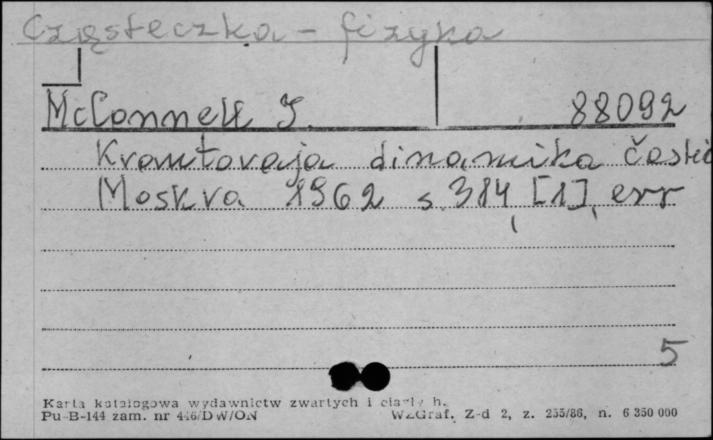 Cząsteczka - fizyka
McConnell J. 88092
Kvantovaja dinamika častic
Moskva 1962 s. 384, [1], err
5
Karta katalogowa wydawnictw zwartych i ciągły h.
Pu-B-144 zam. nr 446/DW/ON WZGraf. Z-d 2, z. 255/86, n. 6 350 000